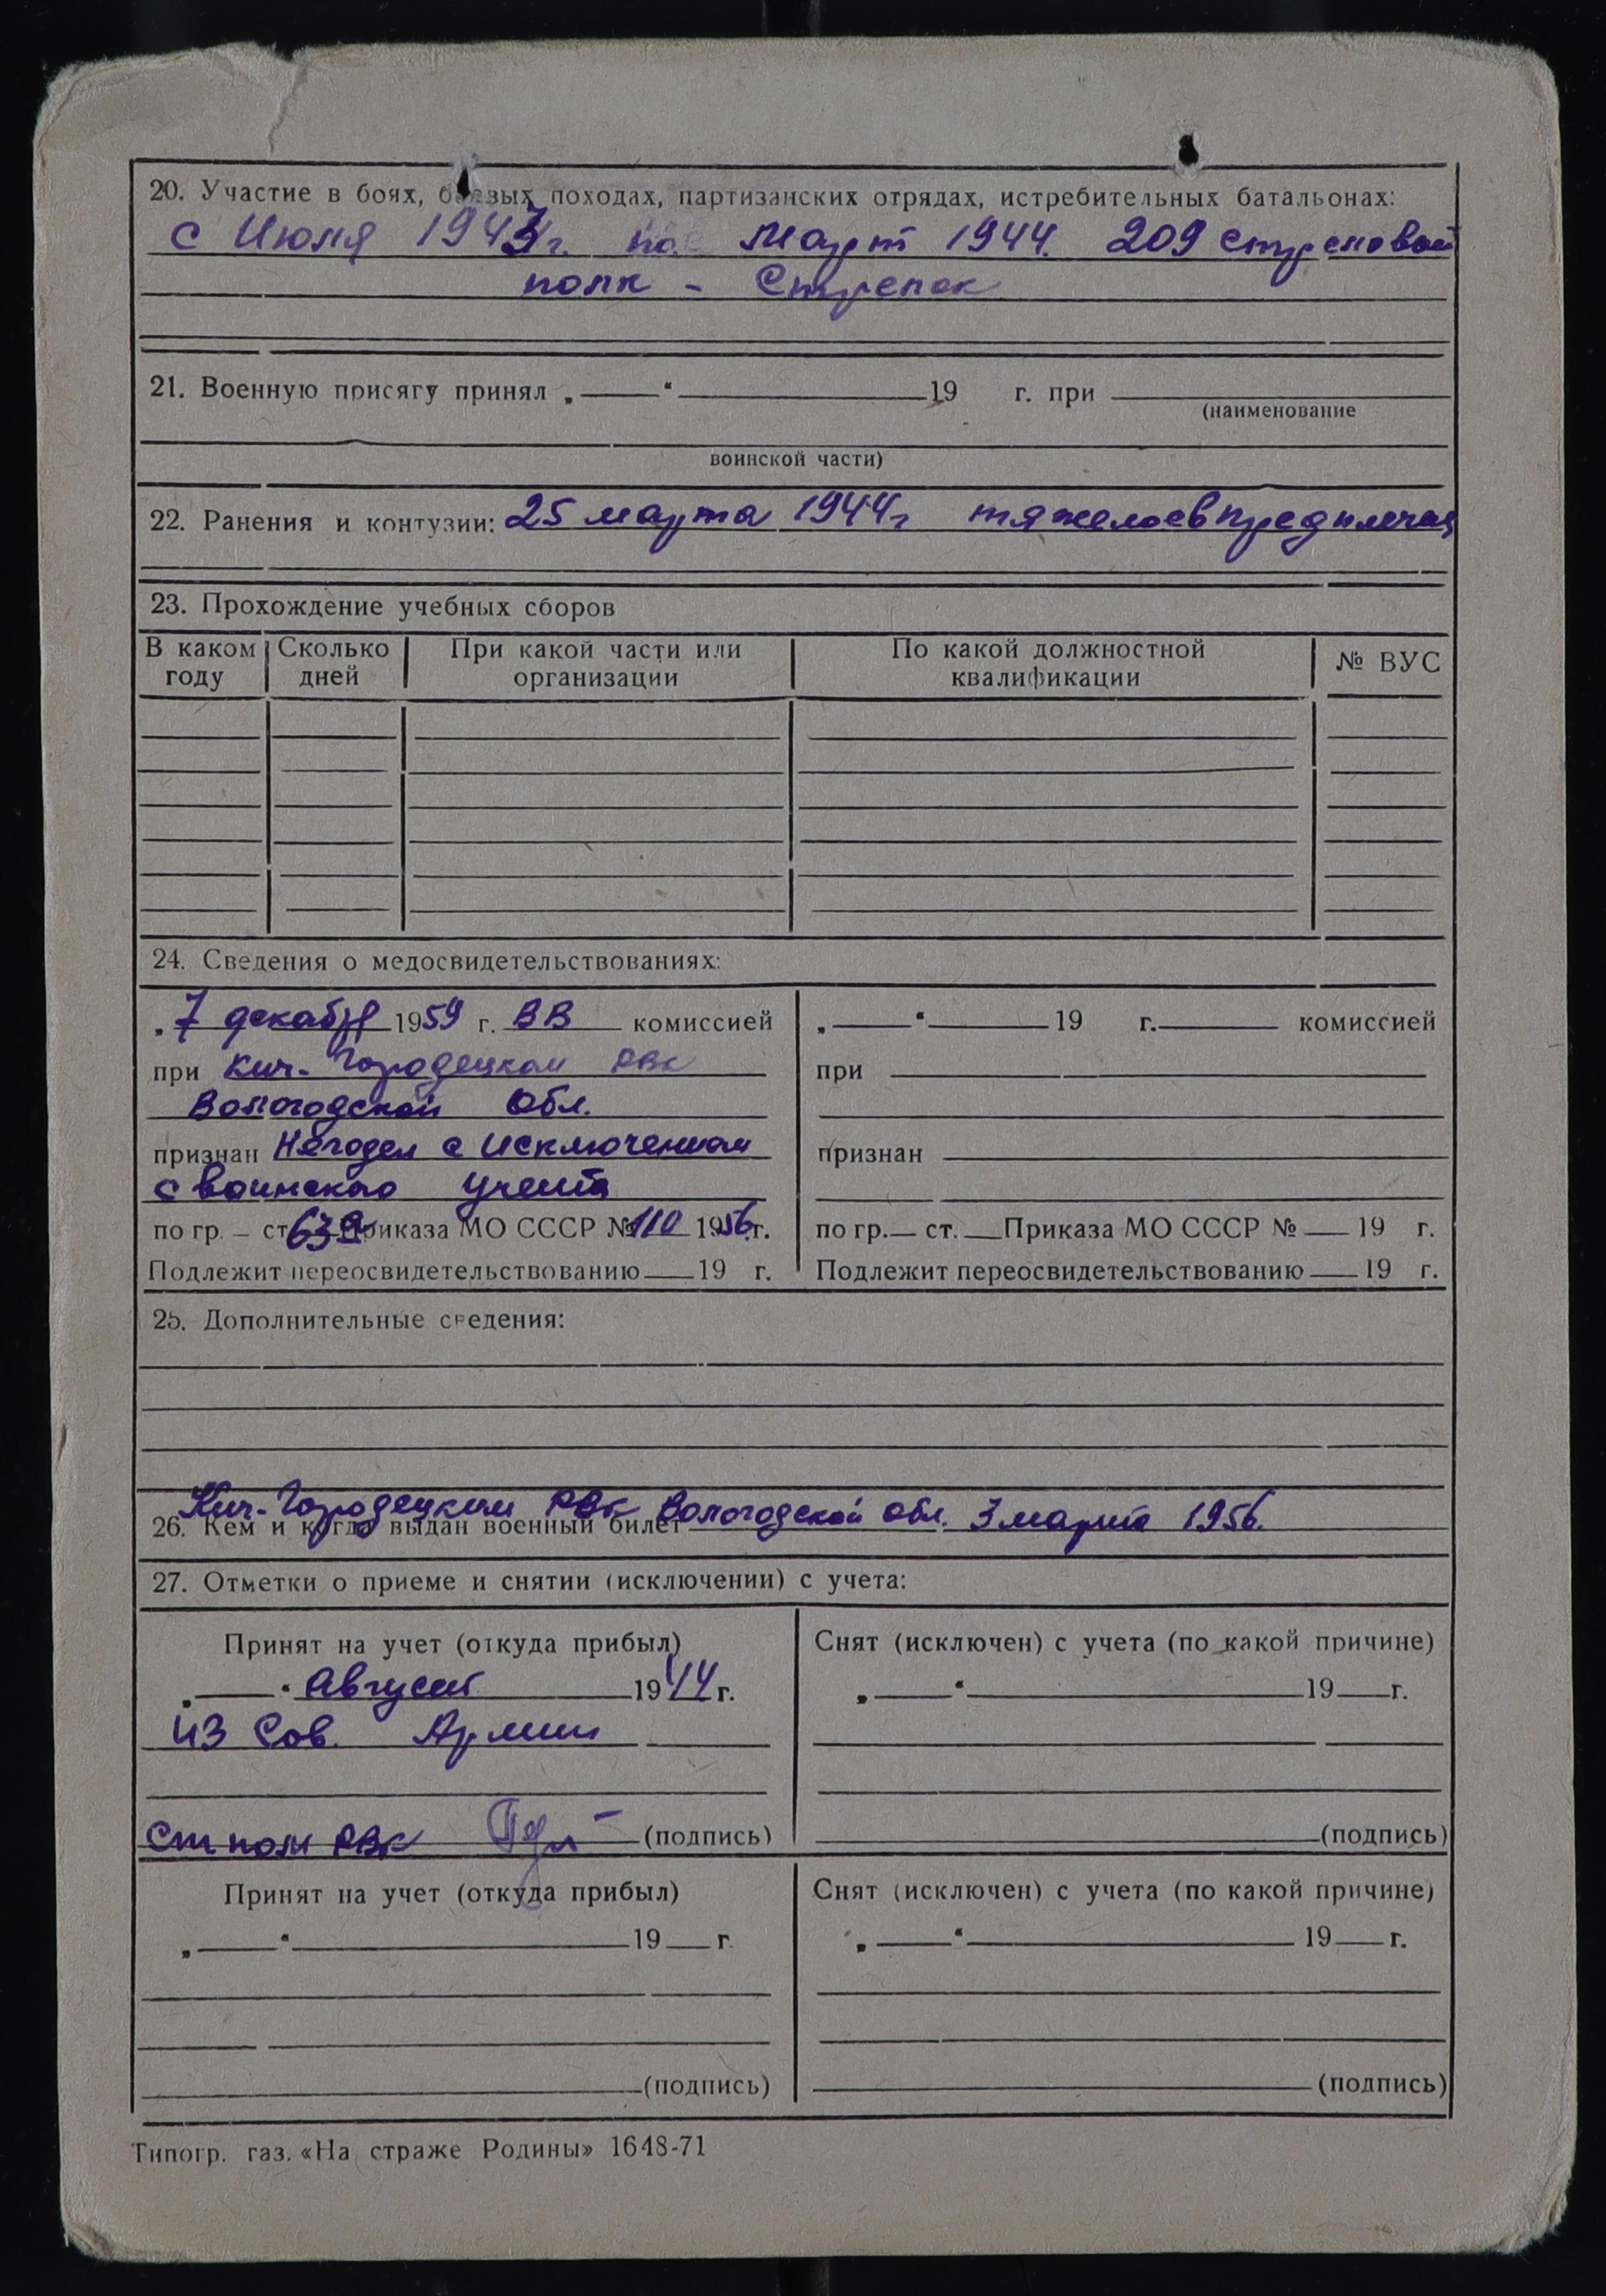 20. Участие в боях, боевых походах, партизанских отрядах, истребительных батальонах:
с Июля 1943г. по Март 1944. 209 стрелковый
полк - Стрелок
21. Военную присягу принял „——“ 19 г. при
(наименование
воинской части)
22. Ранения и контузии: 25 марта 1944г тяжелое в предплечья
23. Прохождение учебных сборов
В каком году Сколько дней При какой части или организации По какой должностной квалификации № ВУС
24. Сведения о медосвидетельствованиях:
„7 декабря 1959 г. ВВ комиссией
при Кич-Городецком РВК
Вологодской Обл.
признан Негоден с исключением
с воинского учета
по гр. – ст. 63 Приказа МО СССР № 110 1956 г.
Подлежит переосвидетельствованию 19 г.
„——“ 19 г. комиссией
при
признан
по гр. — ст. — Приказа МО СССР № — 19 г.
Подлежит переосвидетельствованию — 19 г.
25. Дополнительные сведения:
Кич-Городецким РВК Вологодской обл. 3 марта 1956.
26. Кем и когда выдан военный билет
27. Отметки о приеме и снятии (исключении) с учета:
Принят на учет (откуда прибыл)
„——“ Август 1944 г.
из Сов. Армии
Ст пом РВК (подпись)
Снят (исключен) с учета (по какой причине)
„——“ 19 — г.
(подпись)
Принят на учет (откуда прибыл)
„——“ 19 — г.
(подпись)
Снят (исключен) с учета (по какой причине)
„——“ 19 — г.
(подпись)
Типогр. газ. «На страже Родины» 1648-71